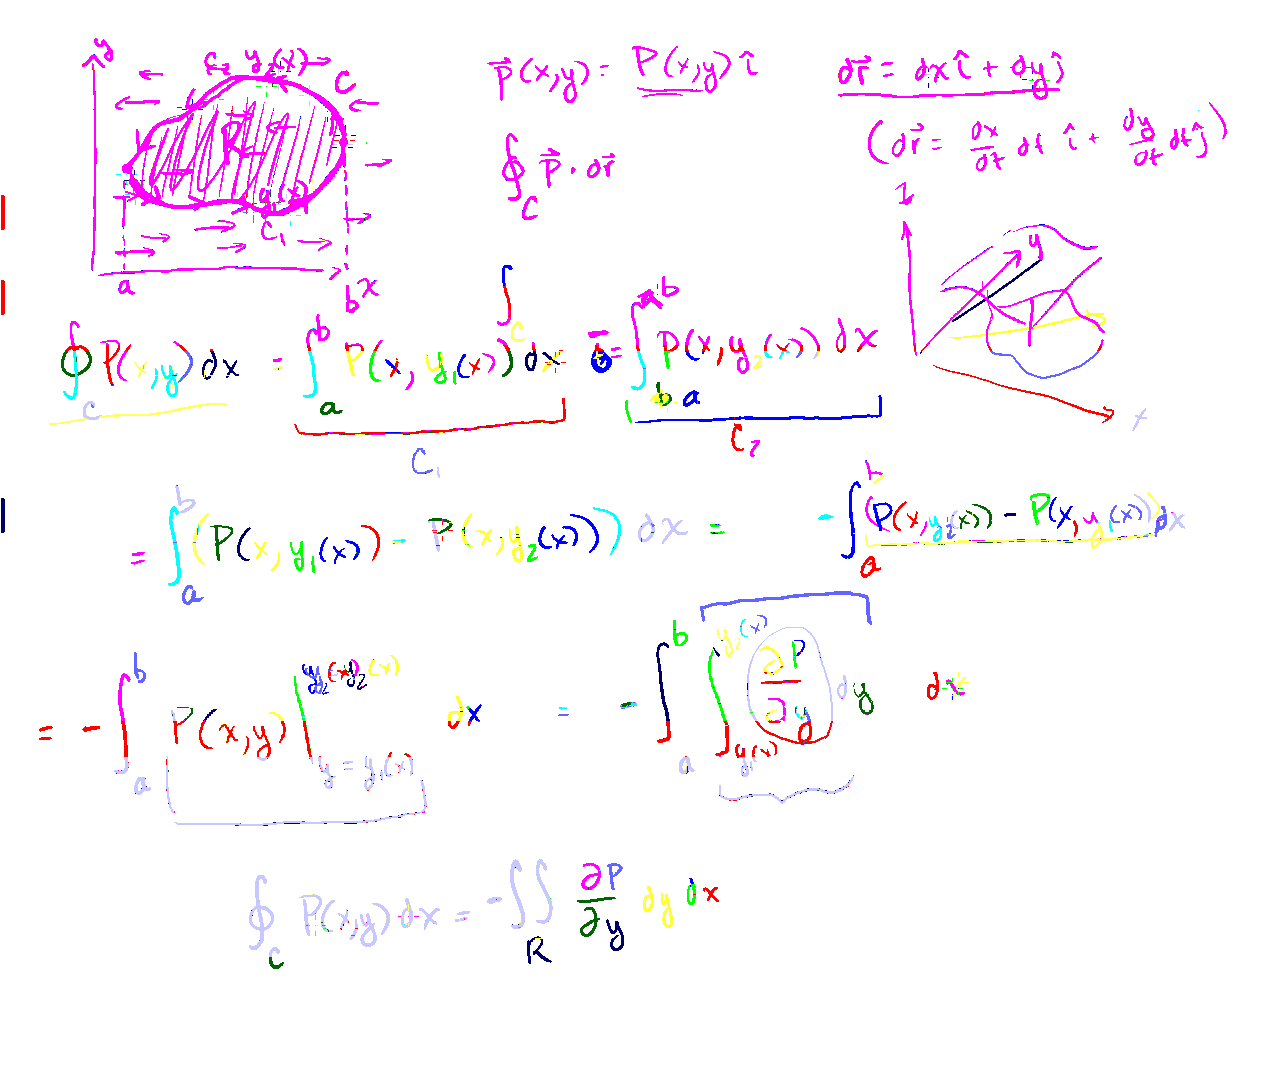 y C₂ y₂(x) C
R
y₁(x)
C₁
a b x
p⃗(x,y) = P(x,y) î
dr⃗ = dx î + dy ĵ
(dr⃗ = dx/dt dt î + dy/dt dt ĵ)
∮_C p⃗ · dr⃗
z y x
∫_C
∮_C P(x,y) dx = ∫_a^b P(x, y₁(x)) dx − ∫_a^b P(x, y₂(x)) dx
C₁ C₂
= ∫_a^b (P(x, y₁(x)) − P(x, y₂(x))) dx = − ∫_a^b (P(x, y₂(x)) − P(x, y₁(x))) dx
= − ∫_a^b P(x,y) |_{y = y₁(x)}^{y₂(x)} dx = − ∫_a^b ∫_{y₁(x)}^{y₂(x)} ∂P/∂y dy dx
∮_C P(x,y) dx = − ∬_R ∂P/∂y dy dx